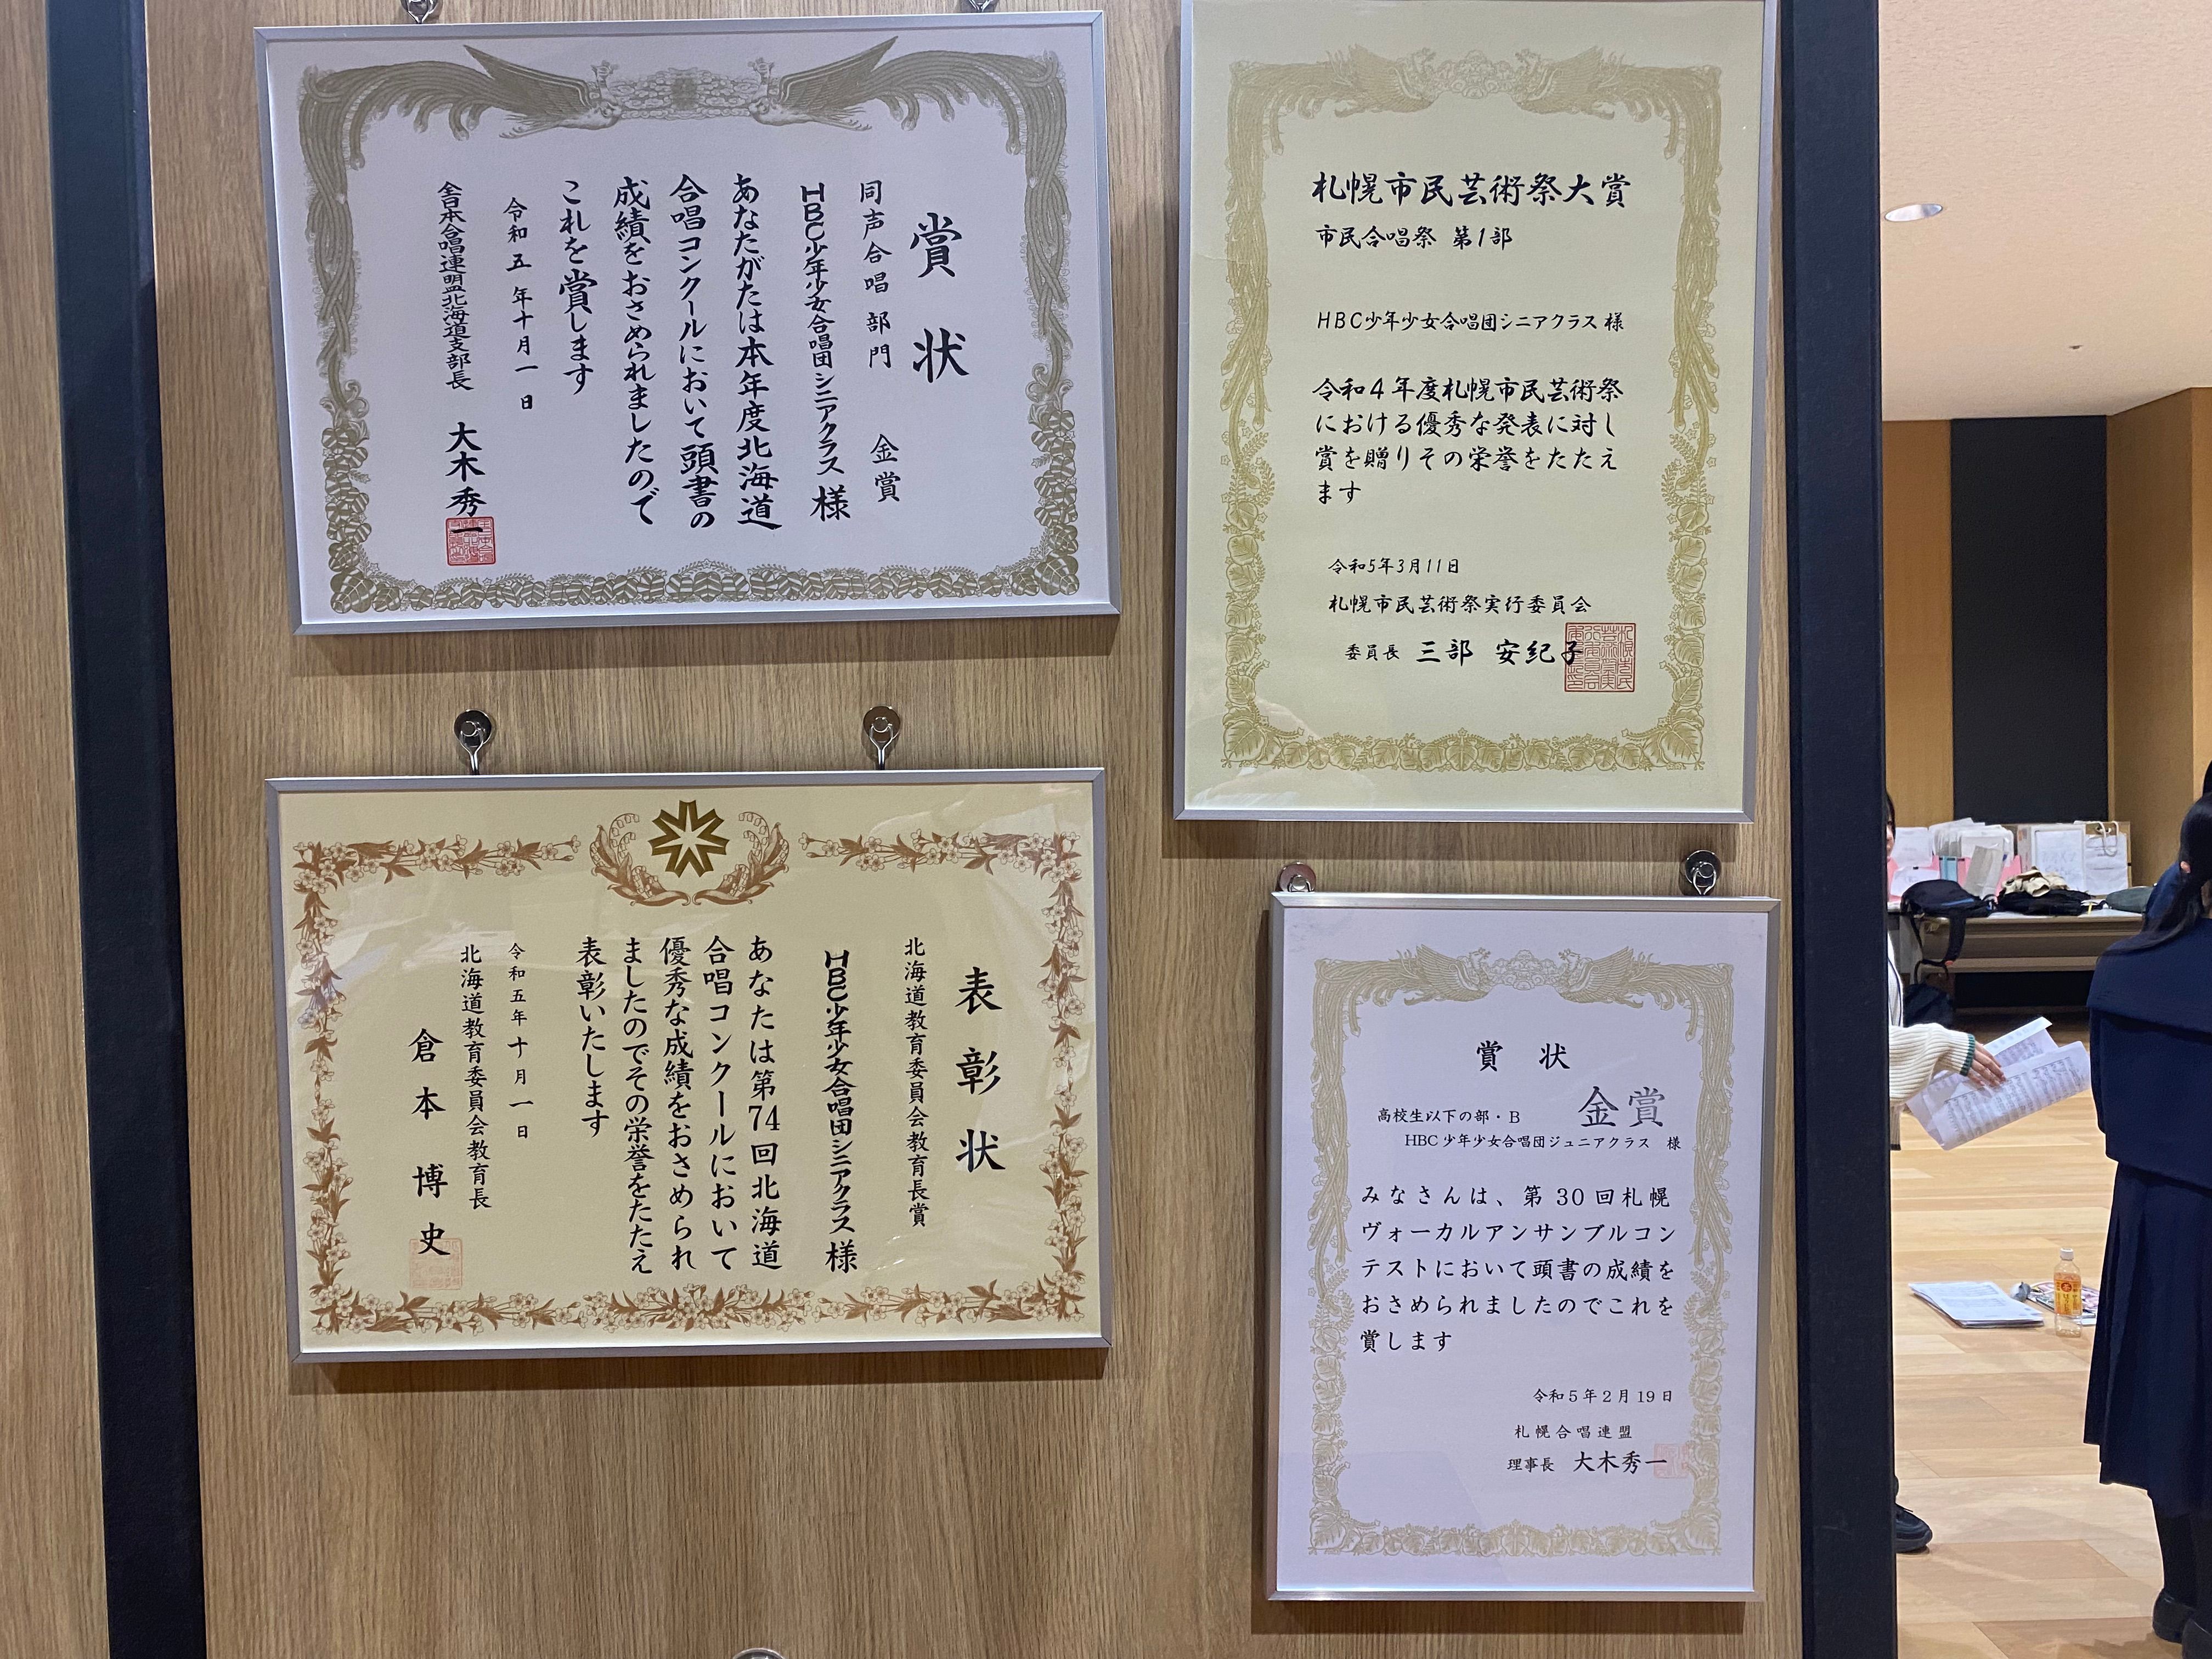 賞状
同声合唱部門 金賞
HBC少年少女合唱団シニアクラス 様
あなたがたは本年度北海道
合唱コンクールにおいて頭書の
成績をおさめられましたので
これを賞します
令和五年十月一日
全日本合唱連盟北海道支部長 大木秀一
札幌市民芸術祭大賞
市民合唱祭 第1部
HBC少年少女合唱団シニアクラス 様
令和4年度札幌市民芸術祭
における優秀な発表に対し
賞を贈りその栄誉をたたえ
ます
令和5年3月11日
札幌市民芸術祭実行委員会
委員長 三部 安紀子
表彰状
北海道教育委員会教育長賞
HBC少年少女合唱団シニアクラス 様
あなたは第74回北海道
合唱コンクールにおいて
優秀な成績をおさめられ
ましたのでその栄誉をたたえ
表彰いたします
令和五年十月一日
北海道教育委員会教育長
倉本博史
賞状
金賞
高校生以下の部・B
HBC少年少女合唱団ジュニアクラス 様
みなさんは、第30回札幌
ヴォーカルアンサンブルコン
テストにおいて頭書の成績を
おさめられましたのでこれを
賞します
令和5年2月19日
札幌合唱連盟
理事長 大木秀一